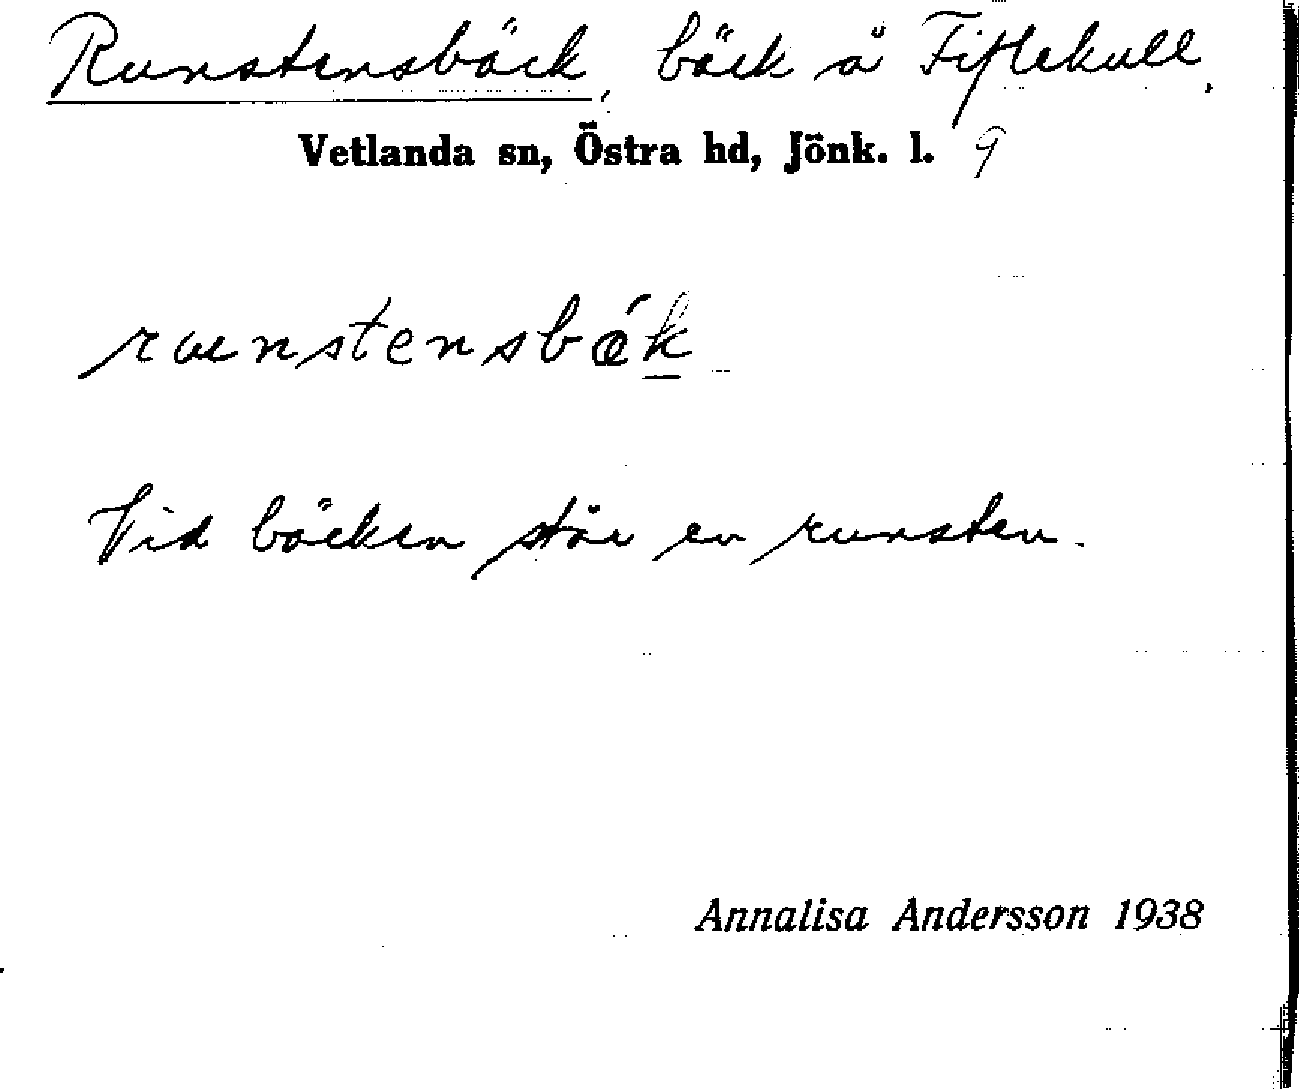 Runstensbäck, bäck å Fiflekull,
Vetlanda sn, Östra hd, Jönk. l. 9
Vid bäcken står en runsten.
Annalisa Andersson 1938